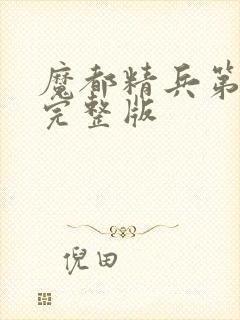 魔都精兵第
完整版
倪田